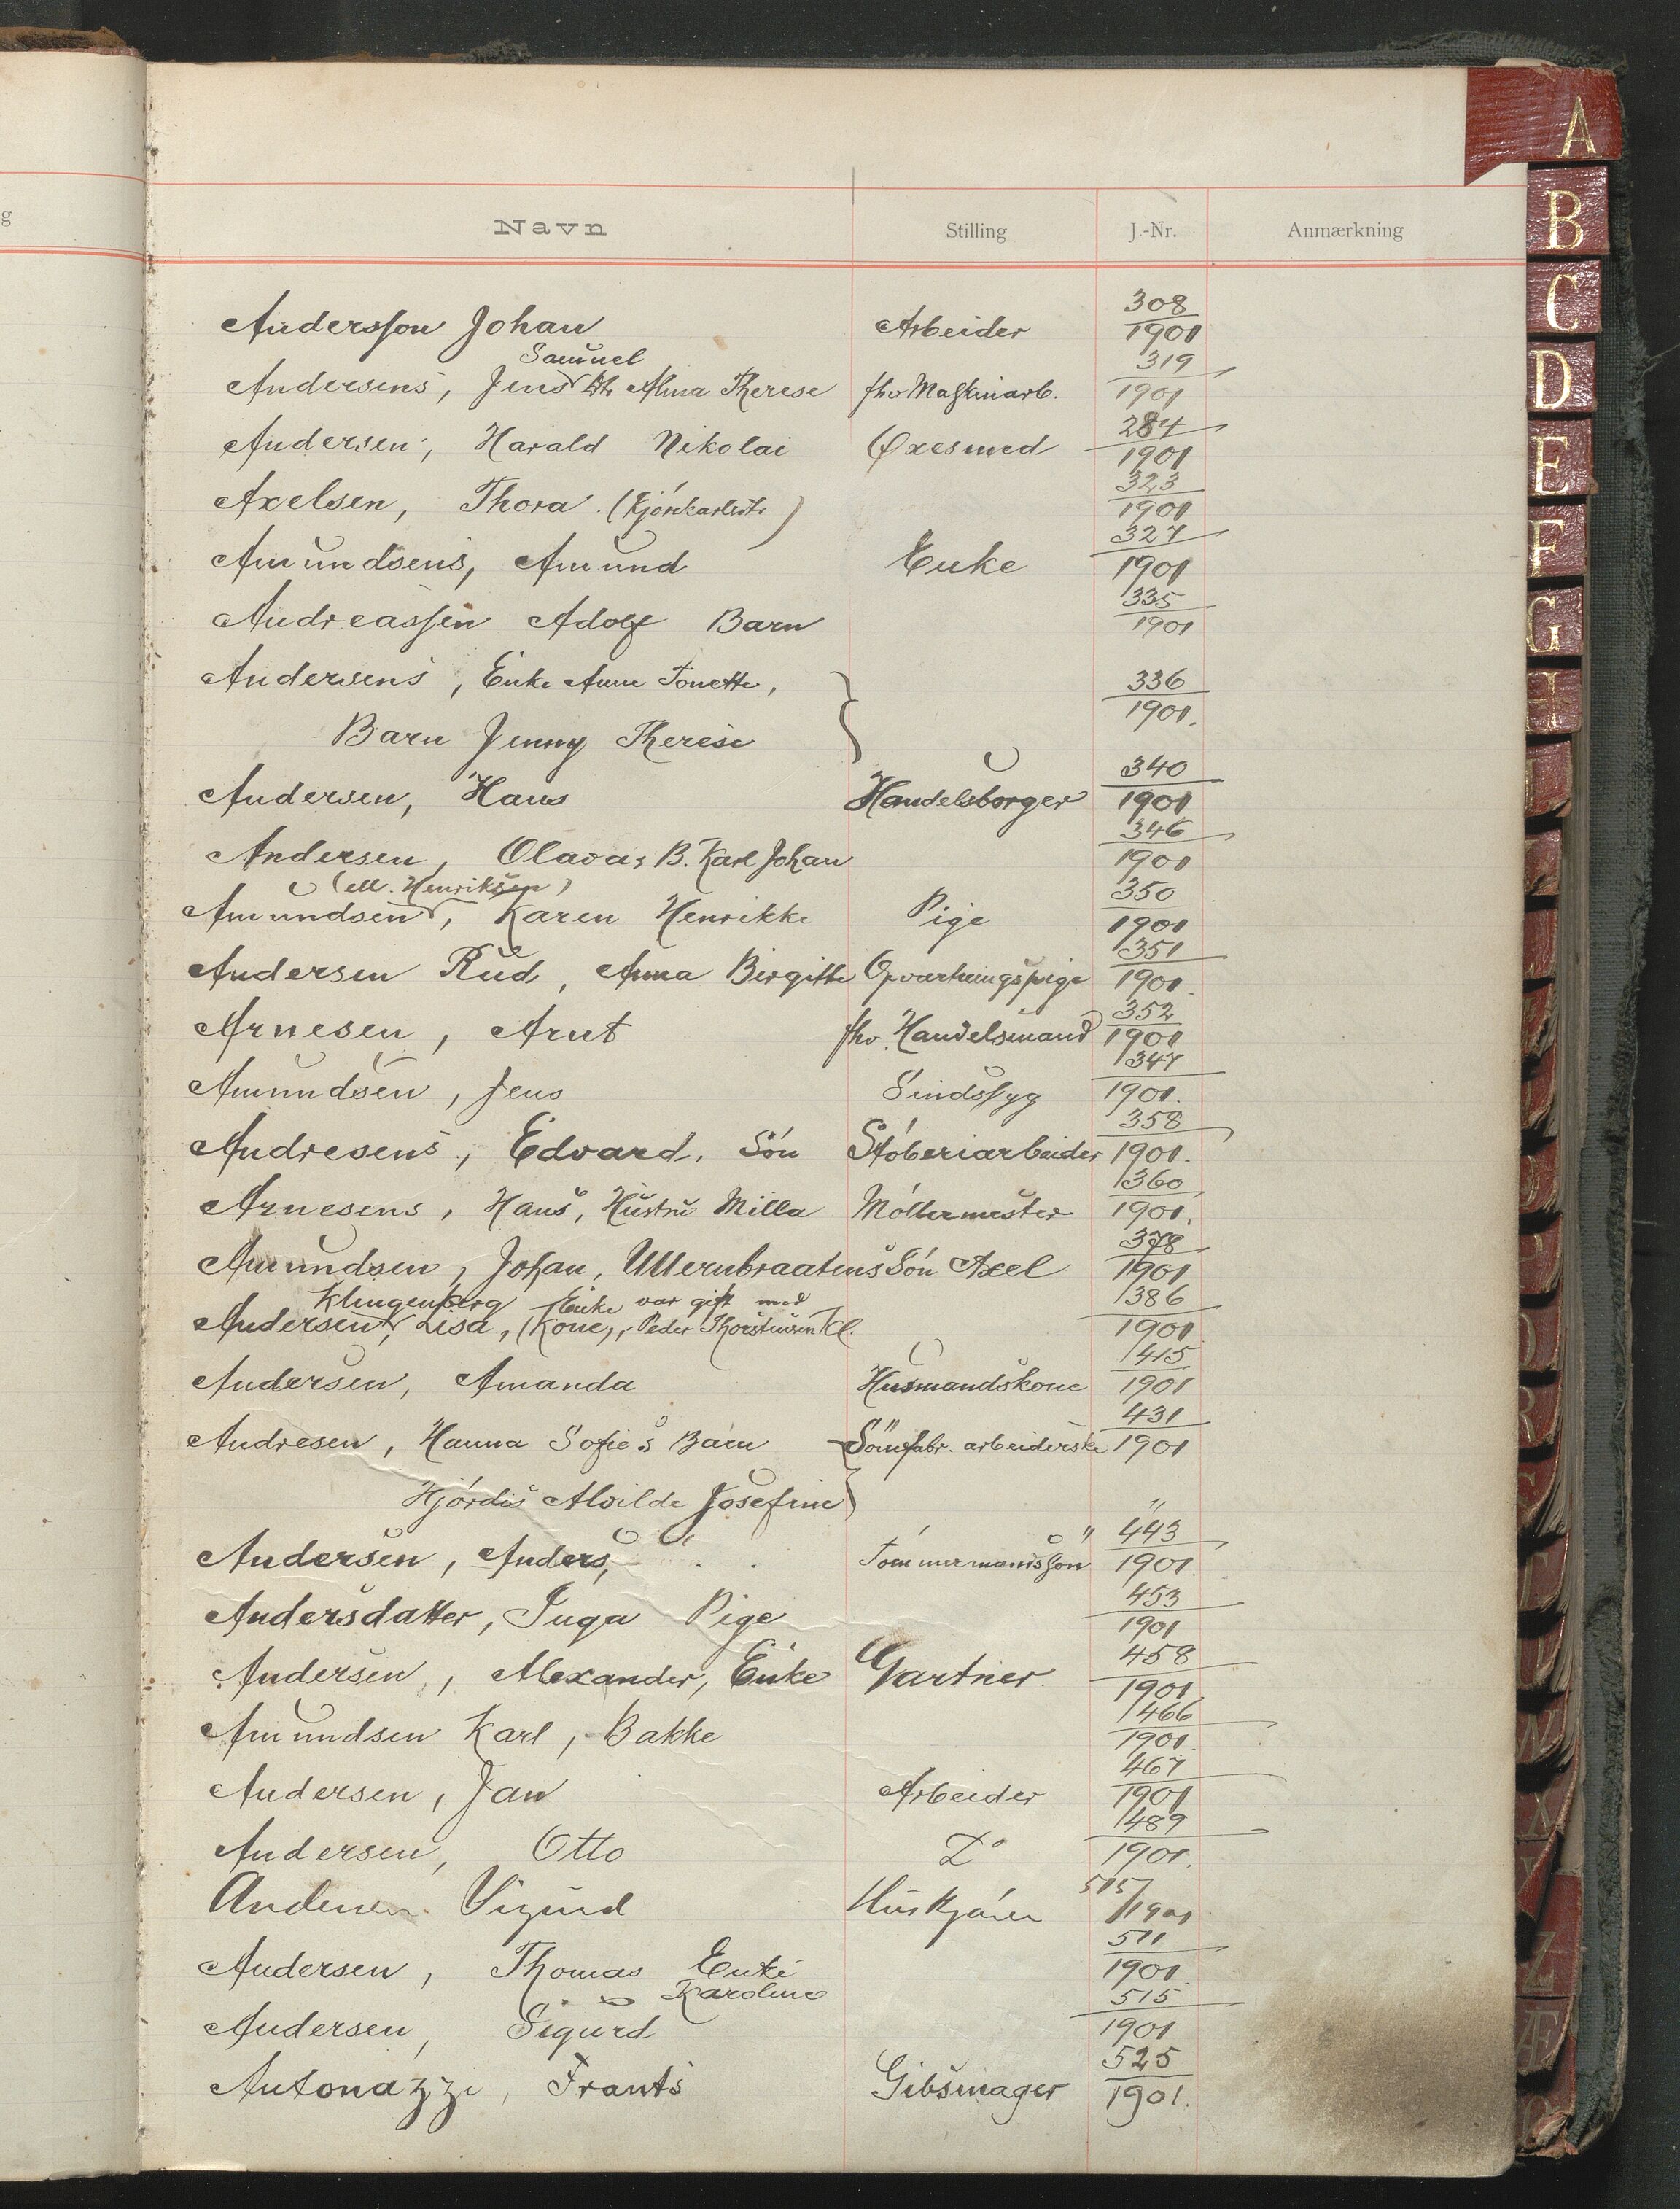 g
Navn Stilling J.-Nr. Anmærkning
Anderssen Johan Arbeider 308/1901
Samuel
Andersens, Jens Dtr Alma Therese fhv Maskinarb. 319/1901
Andersen, Harald Nikolai Øxesmed 284/1901
Axelsen, Thora (Kjörekarlsdtr) 323/1901
Amundsens, Amund Enke 327/1901
Andreassen Adolf Barn 335/1901
Andersens, Enke Anne Tonette, 336/1901.
Barn Jenny Therese
Andersen, Hans Handelsborger 340/1901
Andersen, Olava's B. Karl Johan 346/1901
(ell. Henriksen)
Amundsen, Karen Henrikke Pige 350/1901
Andersen Rud, Anna Birgitte Opvartningspige 351/1901.
Arnesen, Arnt fhv. Handelsmand 352/1901
Amundsen, Jens Sindssyg 347/1901.
Andresens, Edvard, Sön Stöberiarbeider 358/1901.
Arnesens, Hans, Hustru Milla Möllermester 360/1901.
Amundsen, Johan, Ullernbraatens Sön Axel 378/1901
Klingenberg Enke var gift med
Andersen, Lisa, (Kone), Peder Thorstensen Kl. 386/1901
Andersen, Amanda Husmandskone 415/1901
Andresen, Hanna Sofie's Barn Sömfabr. arbeiderske 431/1901
Hjördis Alvilde Josefine
Andersen, Anders, Tömmermandssön 443/1901.
Andersdatter, Inga Pige 453/1901
Andersen, Alexander, Enke Gartner. 458/1901.
Amundsen Karl, Bakke 466/1901.
Andersen, Jan Arbeider 467/1901
Andersen, Otto Do 489/1901.
Andersen Sigurd Huskjörer 515/1901
Andersen, Thomas Enke 511/1901.
Karoline
Andersen, Sigurd 515/1901
Antonazzi, Frants Gibsmager 525/1901.
A
B
C
D
E
F
G
H